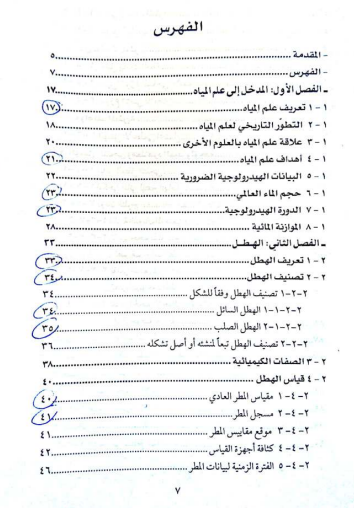 الفهرس
- المقدمة ٥
- الفهرس ٧
- الفصل الأول: المدخل إلى علم المياه ١٧
١ - ١ تعريف علم المياه ١٧
١ - ٢ التطور التاريخي لعلم المياه ١٨
١ - ٣ علاقة علم المياه بالعلوم الأخرى ٢٠
١ - ٤ أهداف علم المياه ٢١
١ - ٥ البيانات الهيدرولوجية الضرورية ٢٢
١ - ٦ حجم الماء العالمي ٢٣
١ - ٧ الدورة الهيدرولوجية ٢٣
١ - ٨ الموازنة المائية ٢٨
- الفصل الثاني: الهطل ٣٣
٢ - ١ تعريف الهطل ٣٣
٢ - ٢ تصنيف الهطل ٣٤
٢-٢-١ تصنيف الهطل وفقاً للشكل ٣٤
٢-٢-١-١ الهطل السائل ٣٤
٢-٢-١-٢ الهطل الصلب ٣٥
٢-٢-٢ تصنيف الهطل تبعاً لمنشئه أو أصل تشكله ٣٦
٢ - ٣ الصفات الكيميائية ٣٨
٢ - ٤ قياس الهطل ٤٠
٢-٤-١ مقياس المطر العادي ٤٠
٢-٤-٢ مسجل المطر ٤١
٢-٤-٣ موقع مقاييس المطر ٤١
٢-٤-٤ كثافة أجهزة القياس ٤٢
٢-٤-٥ الفترة الزمنية لبيانات المطر ٤٦
٧